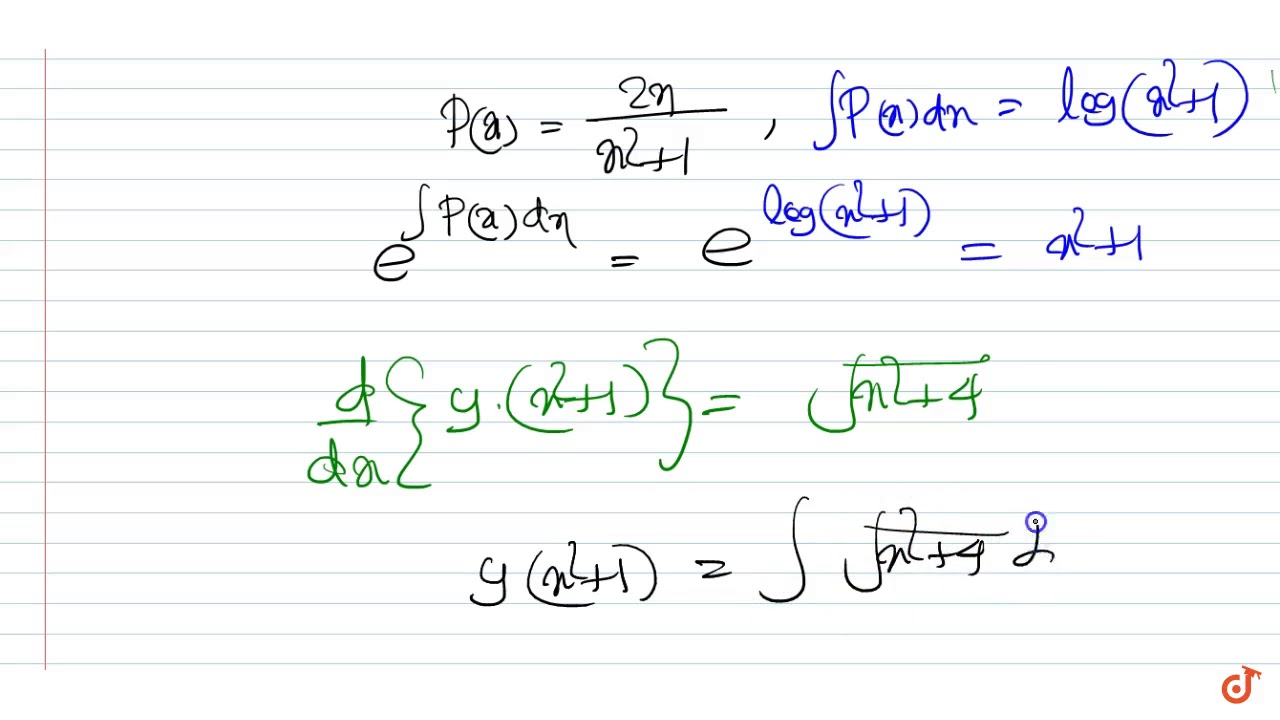 P(x) = 2x/(x²+1) , ∫P(x)dx = log(x²+1)
e^(∫P(x)dx) = e^(log(x²+1)) = x²+1
d/dx{y.(x²+1)} = √(x²+4)
y(x²+1) = ∫√(x²+4)